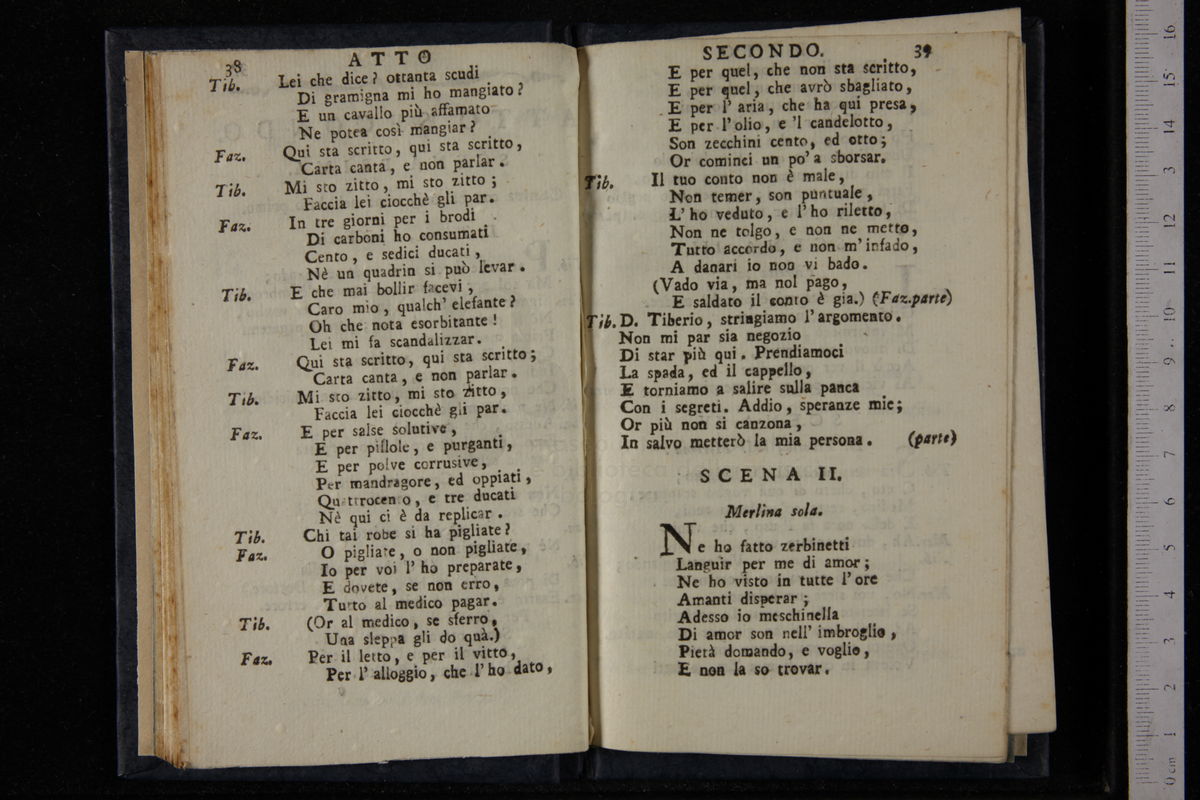 38 ATTO
Tib. Lei che dice? ottanta scudi
Di gramigna mi ho mangiato?
E un cavallo più affamato
Ne potea così mangiar?
Faz. Qui sta scritto, qui sta scritto,
Carta canta, e non parlar.
Tib. Mi sto zitto, mi sto zitto;
Faccia lei ciocchè gli par.
Faz. In tre giorni per i brodi
Di carboni ho consumati
Cento, e sedici ducati,
Nè un quadrin si può levar.
Tib. E che mai bollir facevi,
Caro mio, qualch' elefante?
Oh che nota esorbitante!
Lei mi fa scandalizzar.
Faz. Qui sta scritto, qui sta scritto;
Carta canta, e non parlar.
Tib. Mi sto zitto, mi sto zitto,
Faccia lei ciocchè gli par.
Faz. E per salse solutive,
E per pillole, e purganti,
E per polve corrusive,
Per mandragore, ed oppiati,
Quattrocento, e tre ducati
Nè qui ci è da replicar.
Tib. Chi tai robe si ha pigliate?
Faz. O pigliate, o non pigliate,
Io per voi l' ho preparate,
E dovete, se non erro,
Tutto al medico pagar.
Tib. (Or al medico, se sferro,
Una sleppa gli do quà.)
Faz. Per il letto, e per il vitto,
Per l' alloggio, che l' ho dato,
SECONDO. 39
E per quel, che non sta scritto,
E per quel, che avrò sbagliato,
E per l' aria, che ha qui presa,
E per l' olio, e 'l candelotto,
Son zecchini cento, ed otto;
Or cominci un po' a sborsar.
Tib. Il tuo conto non è male,
Non temer, son puntuale,
L' ho veduto, e l' ho riletto,
Non ne tolgo, e non ne metto,
Tutto accordo, e non m' infado,
A danari io non vi bado.
(Vado via, ma nol pago,
E saldato il conto è gia.) (Faz.parte)
Tib. D. Tiberio, stringiamo l' argomento.
Non mi par sia negozio
Di star più qui. Prendiamoci
La spada, ed il cappello,
E torniamo a salire sulla panca
Con i segreti. Addio, speranze mie;
Or più non si canzona,
In salvo metterò la mia persona. (parte)
SCENA II.
Merlina sola.
Ne ho fatto zerbinetti
Languir per me di amor;
Ne ho visto in tutte l' ore
Amanti disperar;
Adesso io meschinella
Di amor son nell' imbroglio,
Pietà domando, e voglio,
E non la so trovar.